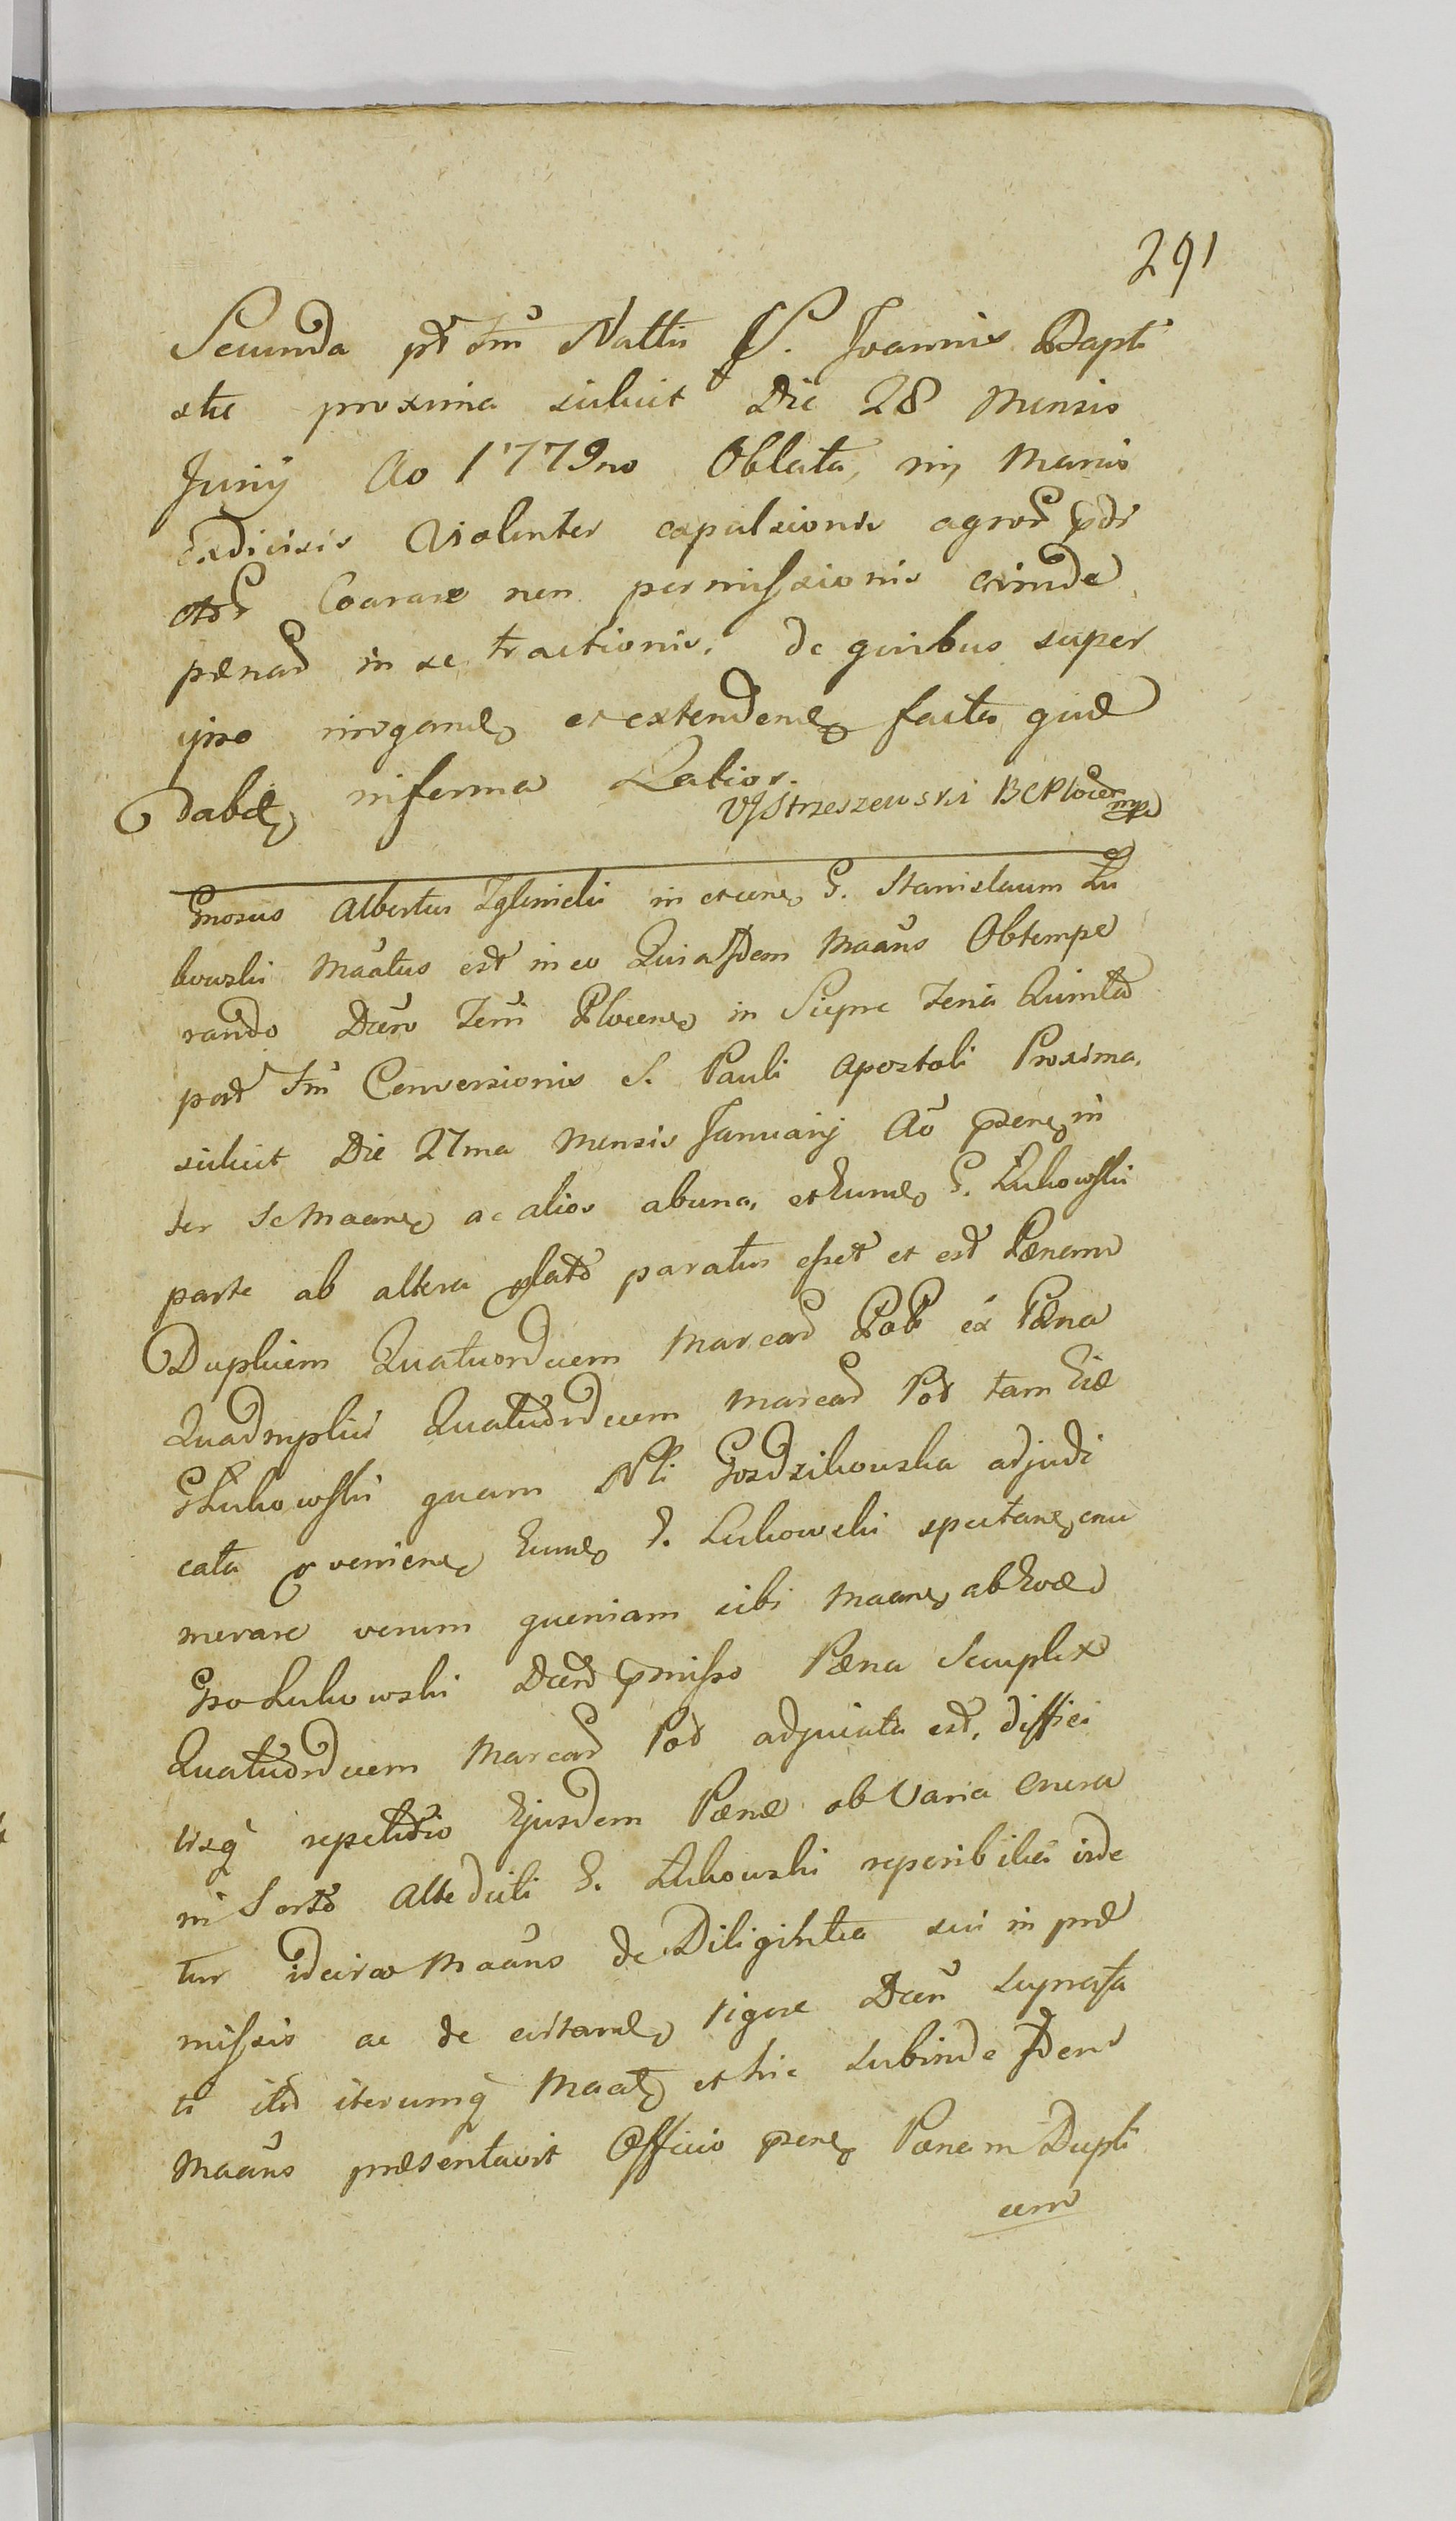 291
Secunda pt Fm Nattis S. Joannis Bapti
stæ proxima scilicet Die 28 Mensis
Junij Ao 1779no Oblata, nij manus
Violenter expulsionis agror
Coarare non permissionis exinde
pænar in se tractionis, de quibus super
ipso irrogand et extendend facta quæ
dabit inferma Latior.
VJStrzeszewski BCPlocen mp
Gnosus Albertus Zglinicki in et cone G. Stanislaum Lu
kowski Maatus est in eo Quia Idem Maans Obtempe
rando Decro Terri Plocens in Sierpc Feria Quinta
post Fm Conversionis S. Pauli Apostoli Proxima.
scilicet Die 27ma Mensis Januarij Ao præsen in
ter se Maane ac alios ab una, et Eund G. Lukowski
parte ab altera plato paratus esset et est Pænam
Duplicem Quatuordecem Marcar Pol ex Pæna
Quadruplici Quatuordecem Marcar Pol tam Eid
GLukowski quam Nli Gozdzikowska adjudi
cata proveniens Eund G. Lukowski spectane enu
merare verum quoniam sibi Maane ab Eod
Gso Lukowski Decro præmisso Pæna Simplex
Quatuordecem Marcar Pol adjuicata est, diffici
lisq repetitio Ejusdem Pænæ ob Varia Onera
in Sorte G. Lukowski reperibilia vide
tur idcirco Maans de Diligentia sui in præ
missis ac de evitand rigore Decri suprata
ti itd iterumq Maat et hic subinde Idem
Maans præsentavit Officio præsen Pænam Dupli
cem